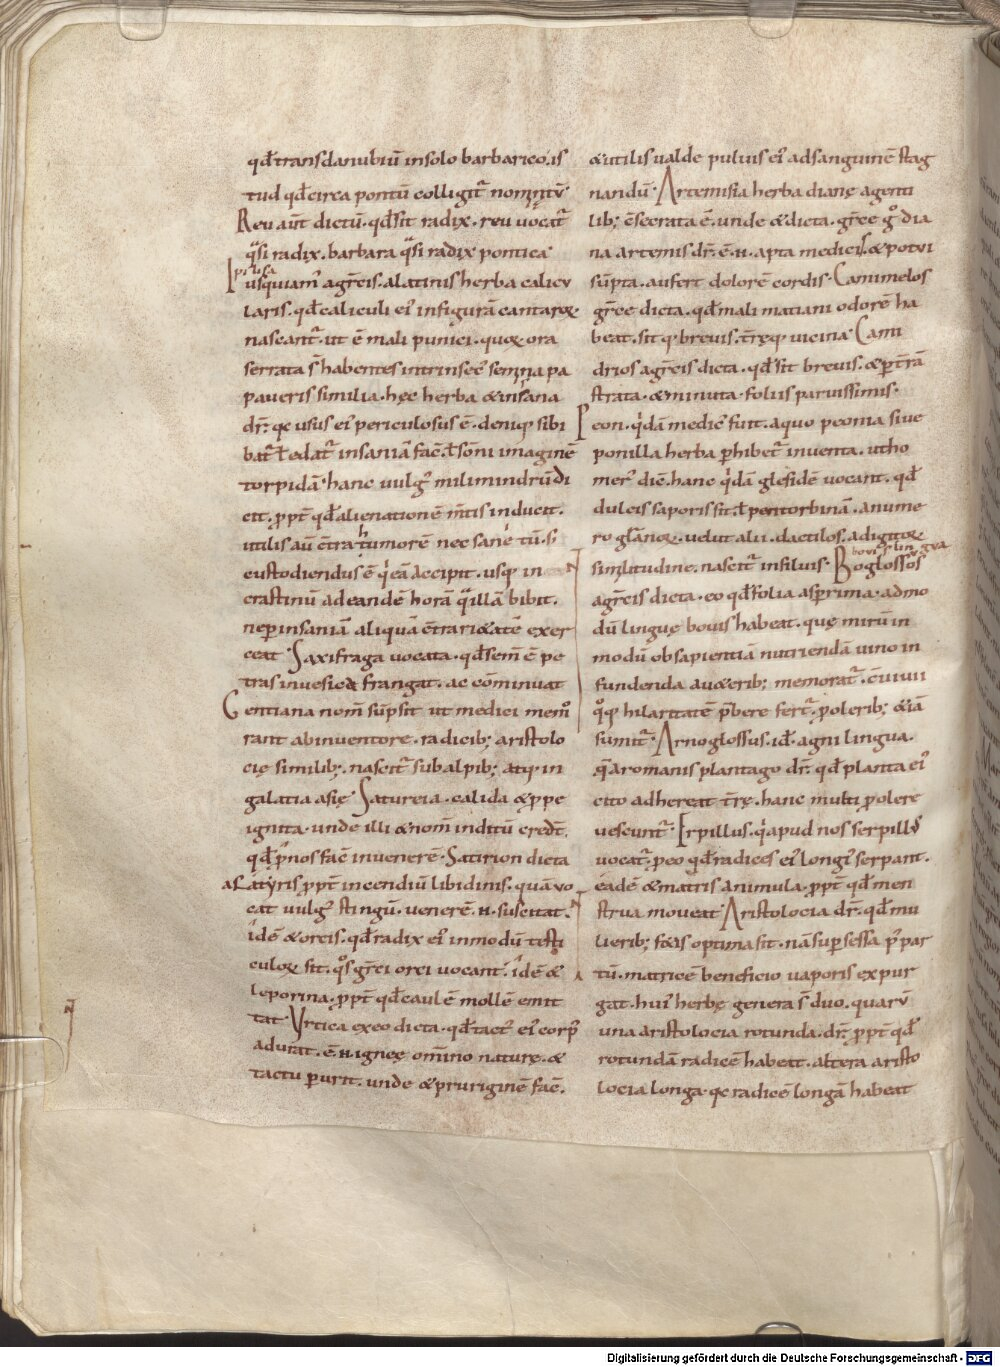 qđ transdanubiū insolo barbarico. is
tud qđ circa pontū colligit᷑ nominatū.
Reu aūt dictū. qđ sit radix. reu uocat᷑
q̊si radix. barbara q̊si radix pontica.
Iusquiam᷒ a grecis. a latinis herba calicu
laris. qđ caliculi ei᷒ infigurā cantaroꝝ
nascant᷑. ut ē mali punici. quoꝝ ora
serrata s̄t habentes intrinsec᷒ semina pa
paueris similia. hęc herba & insana
dr̄. qc usus ei᷒ periculosus ē. deniq; si bi
bat᷑ ł edat᷑ insaniā fac̄. ł sōni imaginē
torpidā. hanc uulg᷒ milimindrū di
cit. ꝓpt̄ qđ alienationē m̄tis inducit.
utilis aū c̄tra tumorē nec sane tū. s;
custodiendus ē q̇ eā accipit. usq; in
crastinū ad eandē horā q̊ illā bibit.
ne ꝑ insaniā aliquā c̄trarietatē exer
ceat. Saxifraga uocata. qđ sem̄ ē pe
tras in uesica frangat. ac cōminuat
Gentiana nom̄ sūpsit ut medici memo
rant ab inuentore. radicib; aristolo
cię similib;. nascit᷑ sub alpib; atq; in
galatia asię. Satureia. calida & ꝓpe
ignita. unde illi & nom̄ inditū credt̄.
qđ pronos fac̄ in uenerē. Satirion dicta
a Satyris ꝓpt̄ incendiū libidinis. quā uo
cat uulg᷒ stingū. uenerē .n. suscitat.
idē & orcis. qđ radix ei᷒ in modū testi
culoꝝ sit. q̊s greci orci uocant. idē &
leporina. ꝓpt̄ qđ caulē mollē emit
tat. Vrtica ex eo dicta. qđ tact᷒ ei᷒ corp᷒
adurat. ē .n. igneę omīno naturę. &
tactu ꝑurit. unde & pruriginē fac̄.
& utilis ualde puluis ei᷒ ad sanguinē stag
nandū. Artemisia herba dianę a genti
lib; c̄secrata ē. unde & dicta. grece g̊ dia
na artemis dr̄. ē .n. apta medicis. & potui
sūpta. aufert dolorē cordis. Camimelos
grece dicta. qđ mali matiani odorē ha
beat. sit q; breuis. t̄ręq; uicina. Cami
drios a grecis dicta. qđ sit breuis. & ꝑ t̄rā
strata. & minuta foliis paruissimis.
Peon. q̇dā medic᷒ fuit. a quo peonia siue
ponilla herba ꝑhibet᷑ inuenta. ut ho
mer᷒ dic̄. hanc q̇dā glefidē uocant. qđ
dulcis saporis sit. ł pentorbinā. a nume
ro glanoꝝ. uelut alii. dactilos. a digitoꝝ
similitudine. nascit᷑ in siluis. Boglossos
bouis lingua
a grecis dicta. eo qđ folia asꝑrima. ad mo
dū linguę bouis habeat. quę mirū in
modū ob sapientiā nutriendā uino in
fundenda auctorib; memorat᷑. c̄uiuii
q̊q; hilaritatē p̄bere fert᷑. ꝓ olerib; & iā
sumit᷑. Arnoglossus. id. agni lingua.
q̄ a romanis plantago dr̄. qđ planta ei᷒
cito adhereat t̄rę. hanc multi ꝓ olere
uescunt᷑. Erpillus. q̇ apud nos serpill᷒
uocat᷑. ꝓ eo qđ radices ei᷒ longi᷒ serpant.
eadē & matris animula. ꝓpt̄ qđ men
strua moueat. Aristolocia dr̄. qđ mu
lierib; fetis optima sit. nā suꝑ sessa p᷒ par
tū. matricē beneficio uaporis expur
gat. hui᷒ herbę genera s̄ duo. quarū
una aristolocia rotunda. dr̄. ꝓpt̄ qđ
rotundā radicē habeat. altera aristo
locia longa. qc radicē longā habeat
Digitalisierung gefördert durch die Deutsche Forschungsgemeinschaft - DFG